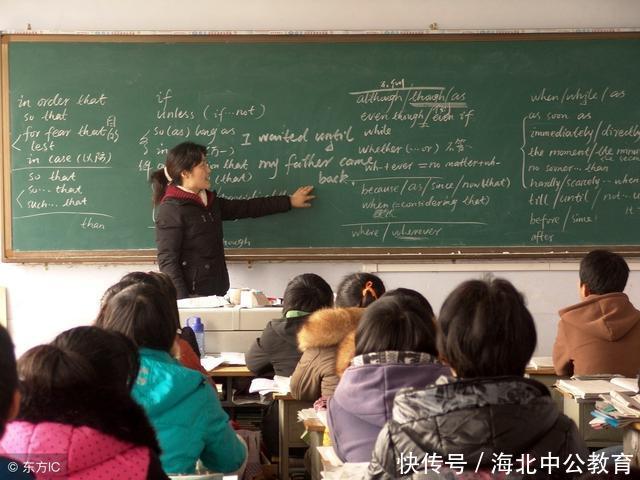 in order that
so that
for fear that
lest
in case (以防)
so that
so... that
such... that
than
if
unless (if...not)
so (as) long as
that
(that)
I waited until
my father came
back
although / though / as
even though / even if
while
whether (...or)
wh-+ever = no matter + wh-
because / as / since / now that)
when (= considering that)
where / wherever
when / while / as
as soon as
immediately / directly
the moment / the
no sooner... than
hardly / scarcely... when
till / until / not...
before / since
after
东方IC
快传号 / 海北中公教育